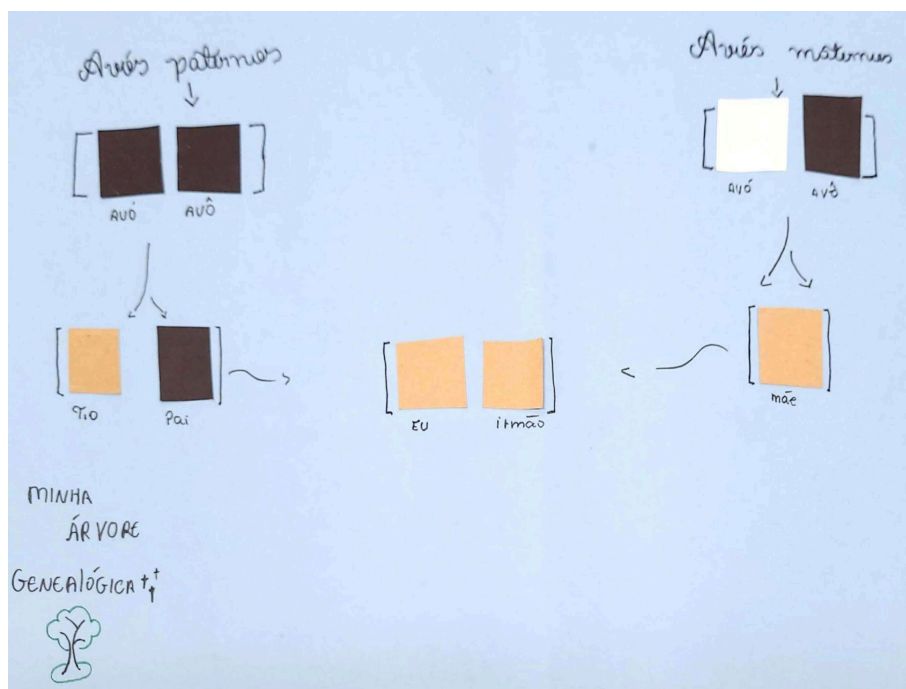 Avós paternos
Avós maternos
AVÓ
AVÔ
AVÓ
AVÔ
TiO
Pai
EU
irmão
mãe
MINHA
ÁRVORE
GENEALÓGICA